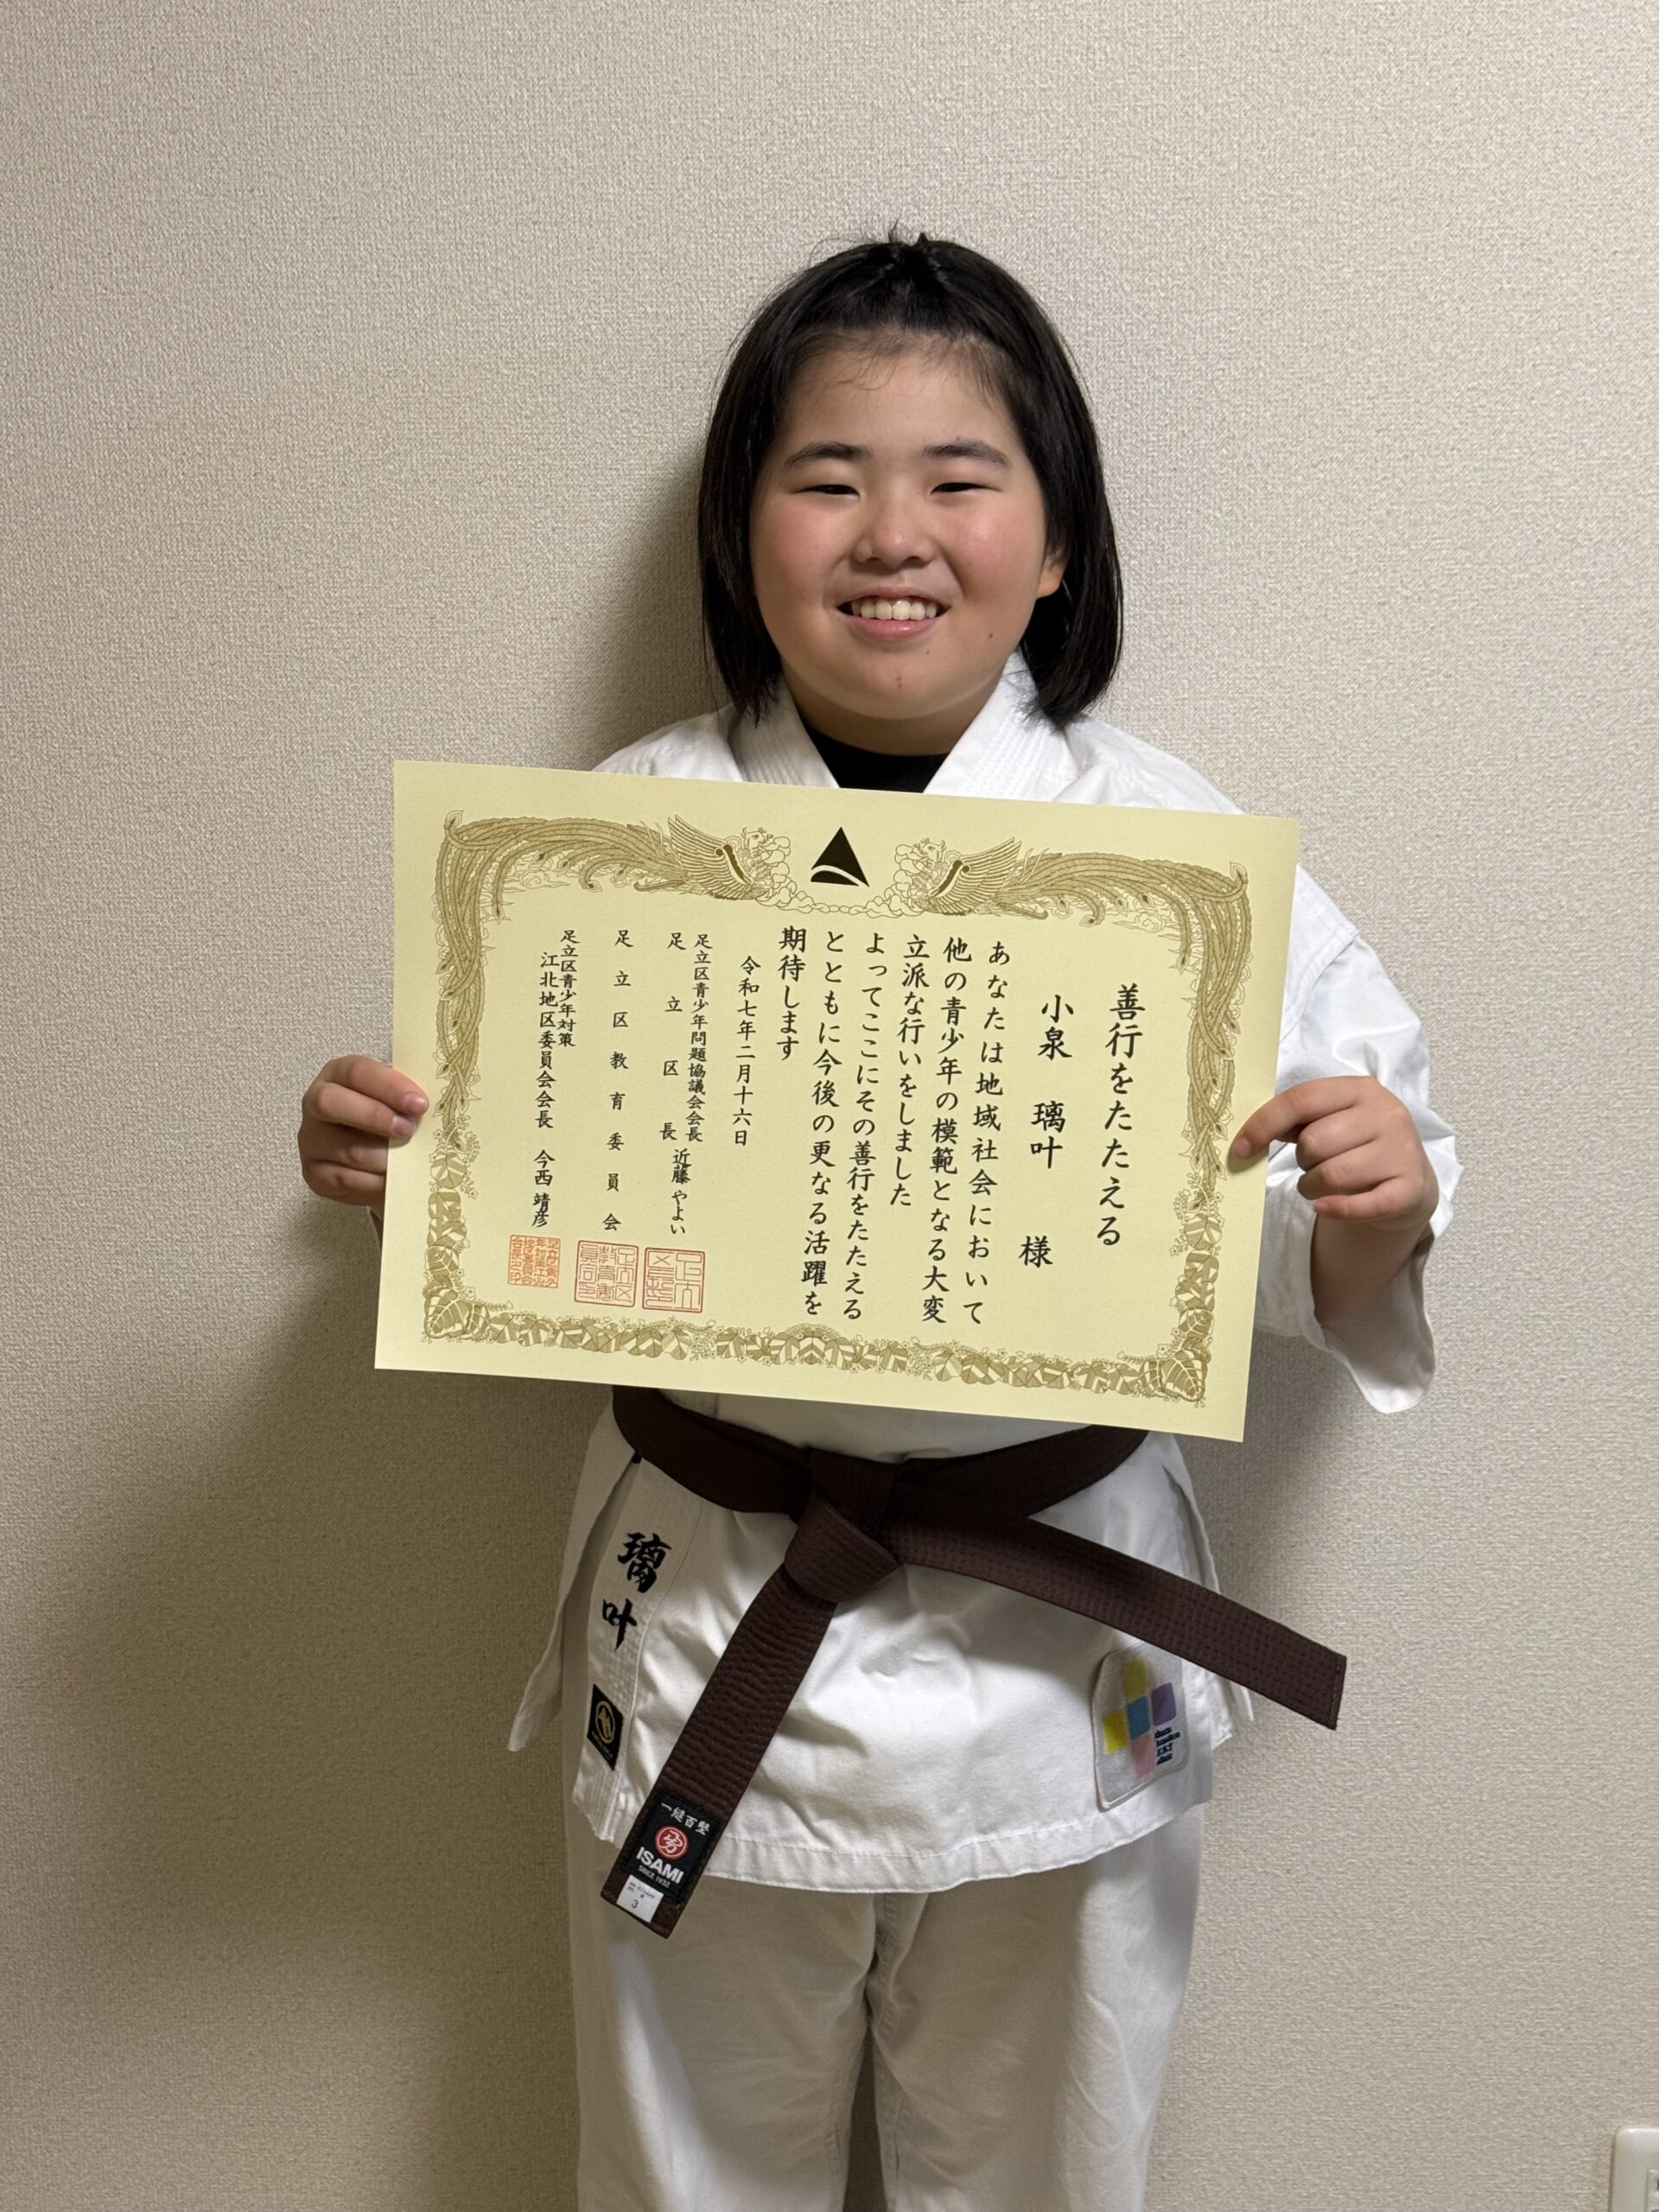 善行をたたえる
小泉 璃叶 様
あなたは地域社会において
他の青少年の模範となる大変
立派な行いをしました
よってここにその善行をたたえる
とともに今後の更なる活躍を
期待します
令和七年二月十六日
足立区青少年問題協議会会長
足立区長 近藤 やよい
足立区教育委員会
足立区青少年対策
江北地区委員会会長 今西 靖彦
璃叶
ISAMI
SINCE 1932
3